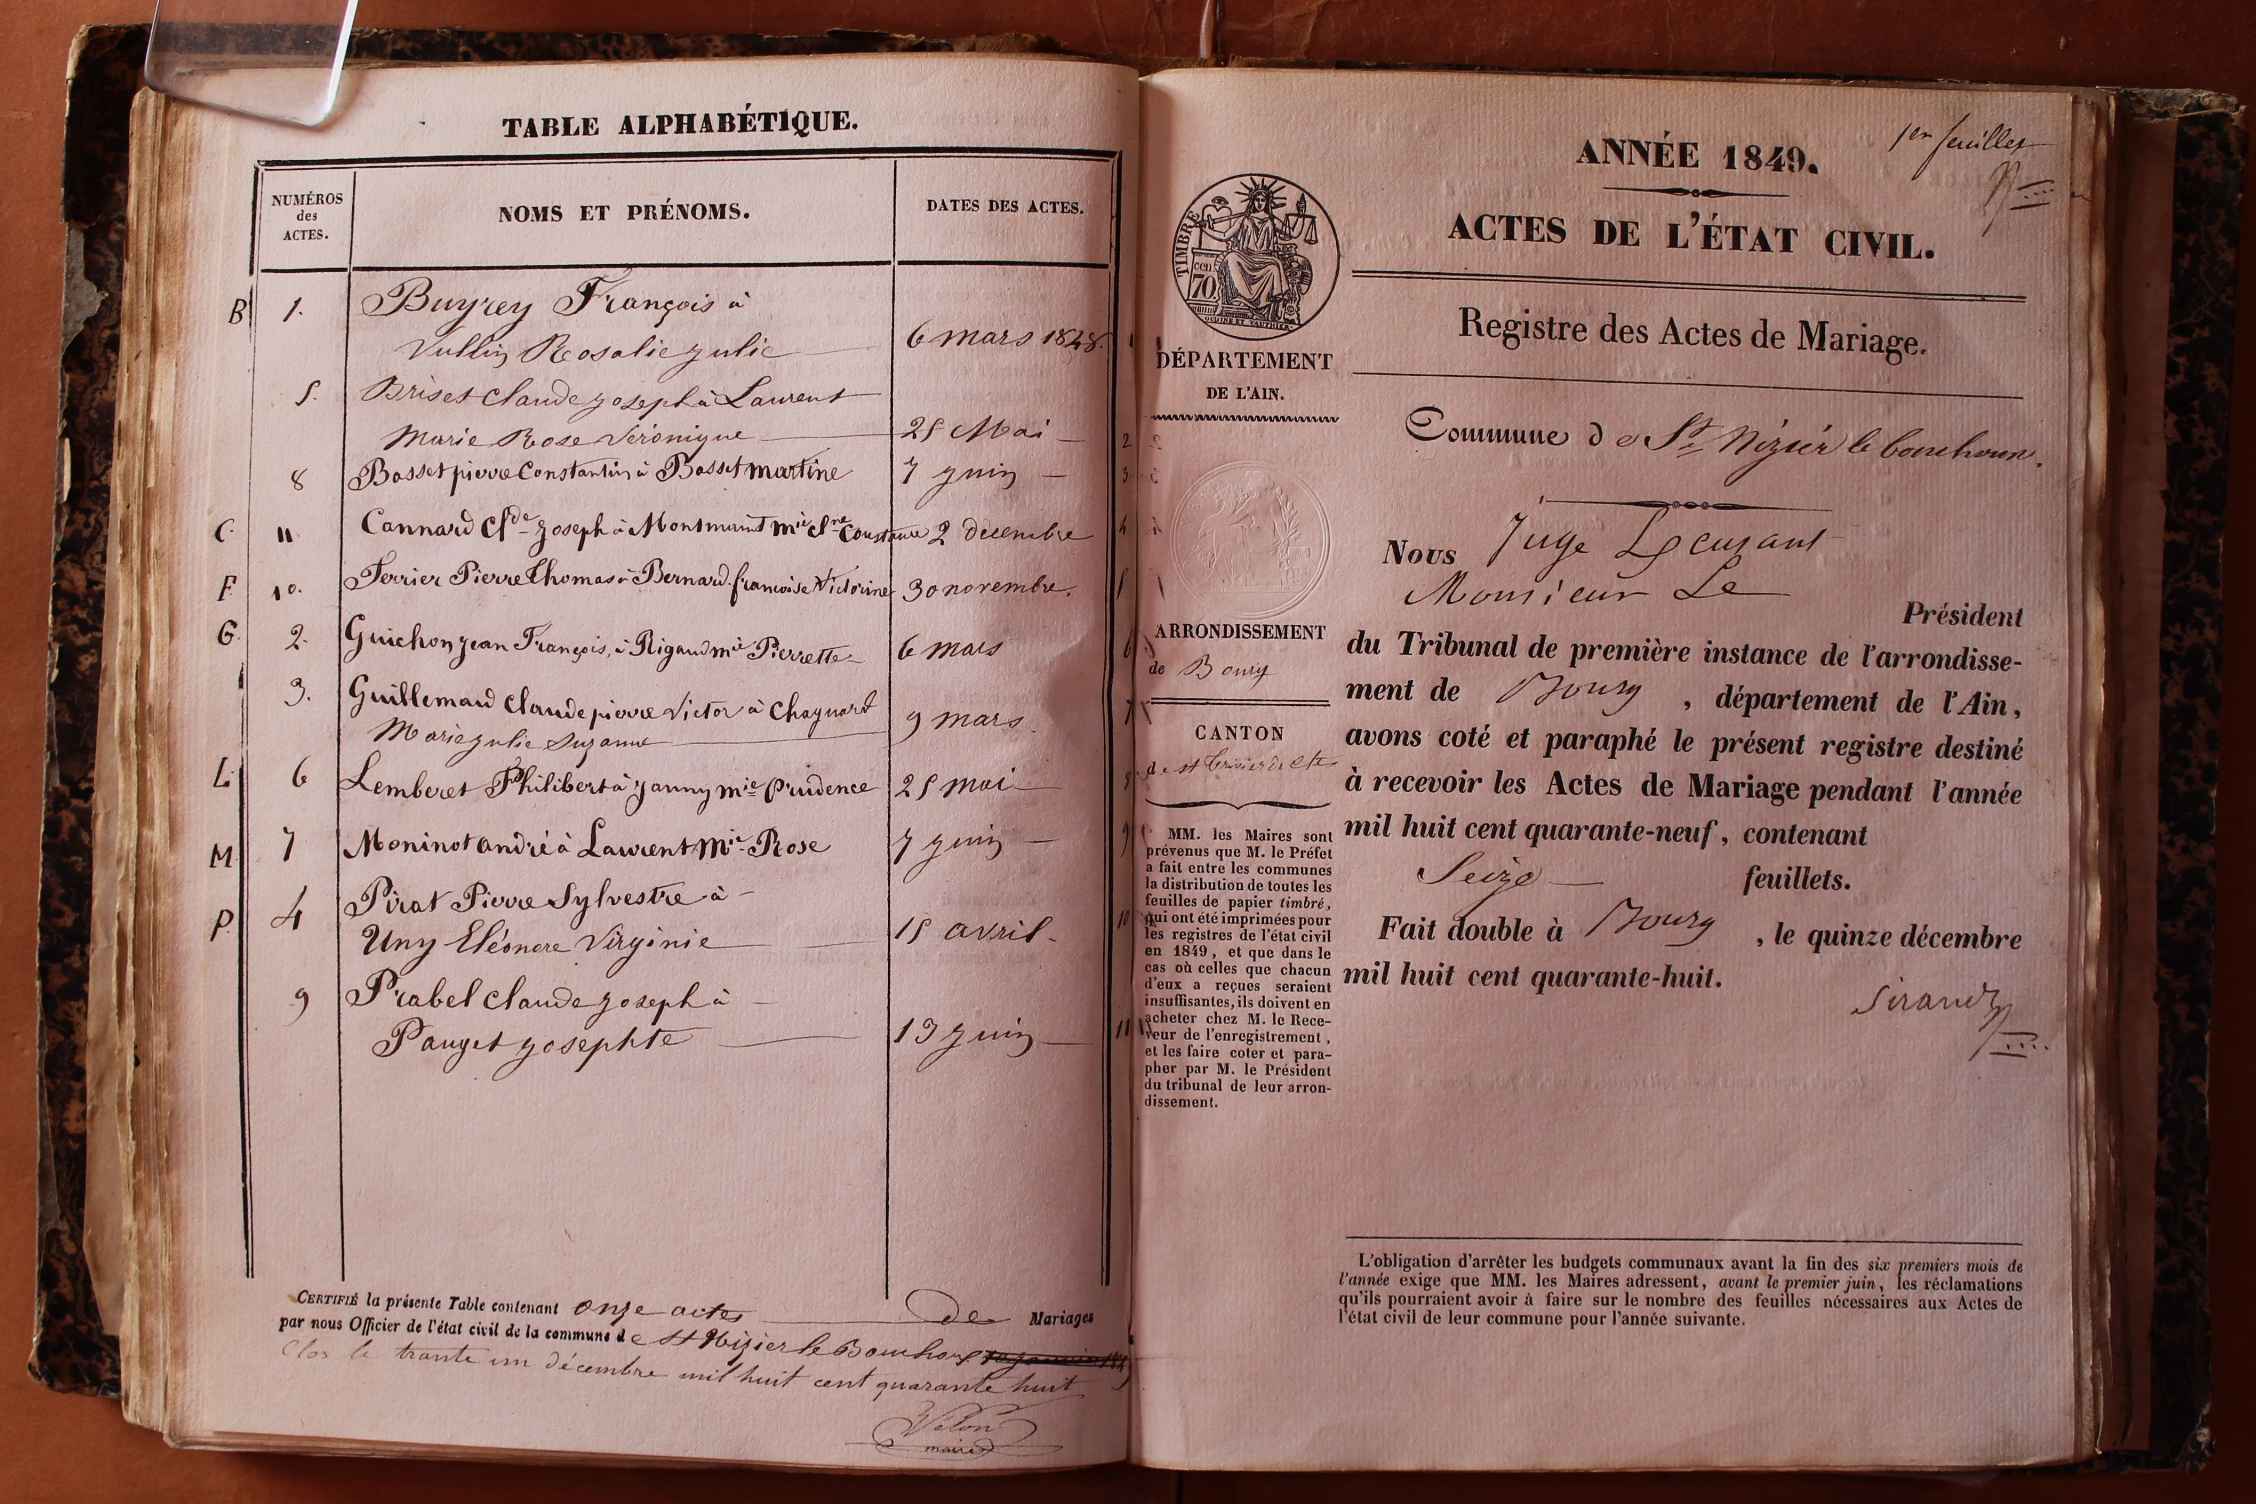 TABLE ALPHABÉTIQUE.
NUMÉROS
des
ACTES.
NOMS ET PRÉNOMS.
DATES DES ACTES.
B 1. Buyrey François à
Vullin Rosalie Julie 6 mars 1848.
5. Briset Claude Joseph à Laurent
Marie Rose Véronique 25 Mai
8 Basset pierre Constantin à Basset martine 7 juin
C. 11 Cannard Cl.de Joseph à Montmurat mie Constance 2 decembre
F 10. Ferrier Pierre Thomas à Bernard françoise Victorine 30 novembre.
G. 2. Guichon Jean François, à Rigaud mie Pierrette 6 mars
3. Guillemaud Claude pierre Victor à Chagnard
Marie Julie Suzanne 9 mars
L. 6 Lemberet Philibert à Janny mie prudence 25 mai
M 7 Moninot andré à Laurent Mie Rose 7 juin
P. 4 Pirat Pierre Sylvestre à
Uny Eléonore Virginie 15 avril.
9 Prabel Claude Joseph à
Pauget Josephte 13 Juin
CERTIFIÉ la présente Table contenant onze actes de Mariages
par nous Officier de l'état civil de la commune de St Nizier le Bouchoux
Clos le trante un décembre mil huit cent quarante huit
maire
1er feuillet
ANNÉE 1849.
ACTES DE L'ÉTAT CIVIL.
Registre des Actes de Mariage.
TIMBRE
cen
70
DÉPARTEMENT
DE L'AIN.
ARRONDISSEMENT
de Bourg
CANTON
de st trivier de Ctes
MM. les Maires sont
prévenus que M. le Préfet
a fait entre les communes
la distribution de toutes les
feuilles de papier timbré,
qui ont été imprimées pour
les registres de l'état civil
en 1849, et que dans le
cas où celles que chacun
d'eux a reçues seraient
insuffisantes, ils doivent en
acheter chez M. le Rece-
veur de l'enregistrement,
et les faire coter et para-
pher par M. le Président
du tribunal de leur arron-
dissement.
Commune de St Nizier le bouchoux.
Nous Juge
Monsieur Le
Président
du Tribunal de première instance de l'arrondisse-
ment de Bourg, département de l'Ain,
avons coté et paraphé le présent registre destiné
à recevoir les Actes de Mariage pendant l'année
mil huit cent quarante-neuf, contenant
Seize feuillets.
Fait double à Bourg, le quinze décembre
mil huit cent quarante-huit.
Sirand
L'obligation d'arrêter les budgets communaux avant la fin des six premiers mois de
l'année exige que MM. les Maires adressent, avant le premier juin, les réclamations
qu'ils pourraient avoir à faire sur le nombre des feuilles nécessaires aux Actes de
l'état civil de leur commune pour l'année suivante.